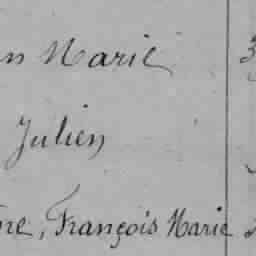 Marie
Julien
François Marie